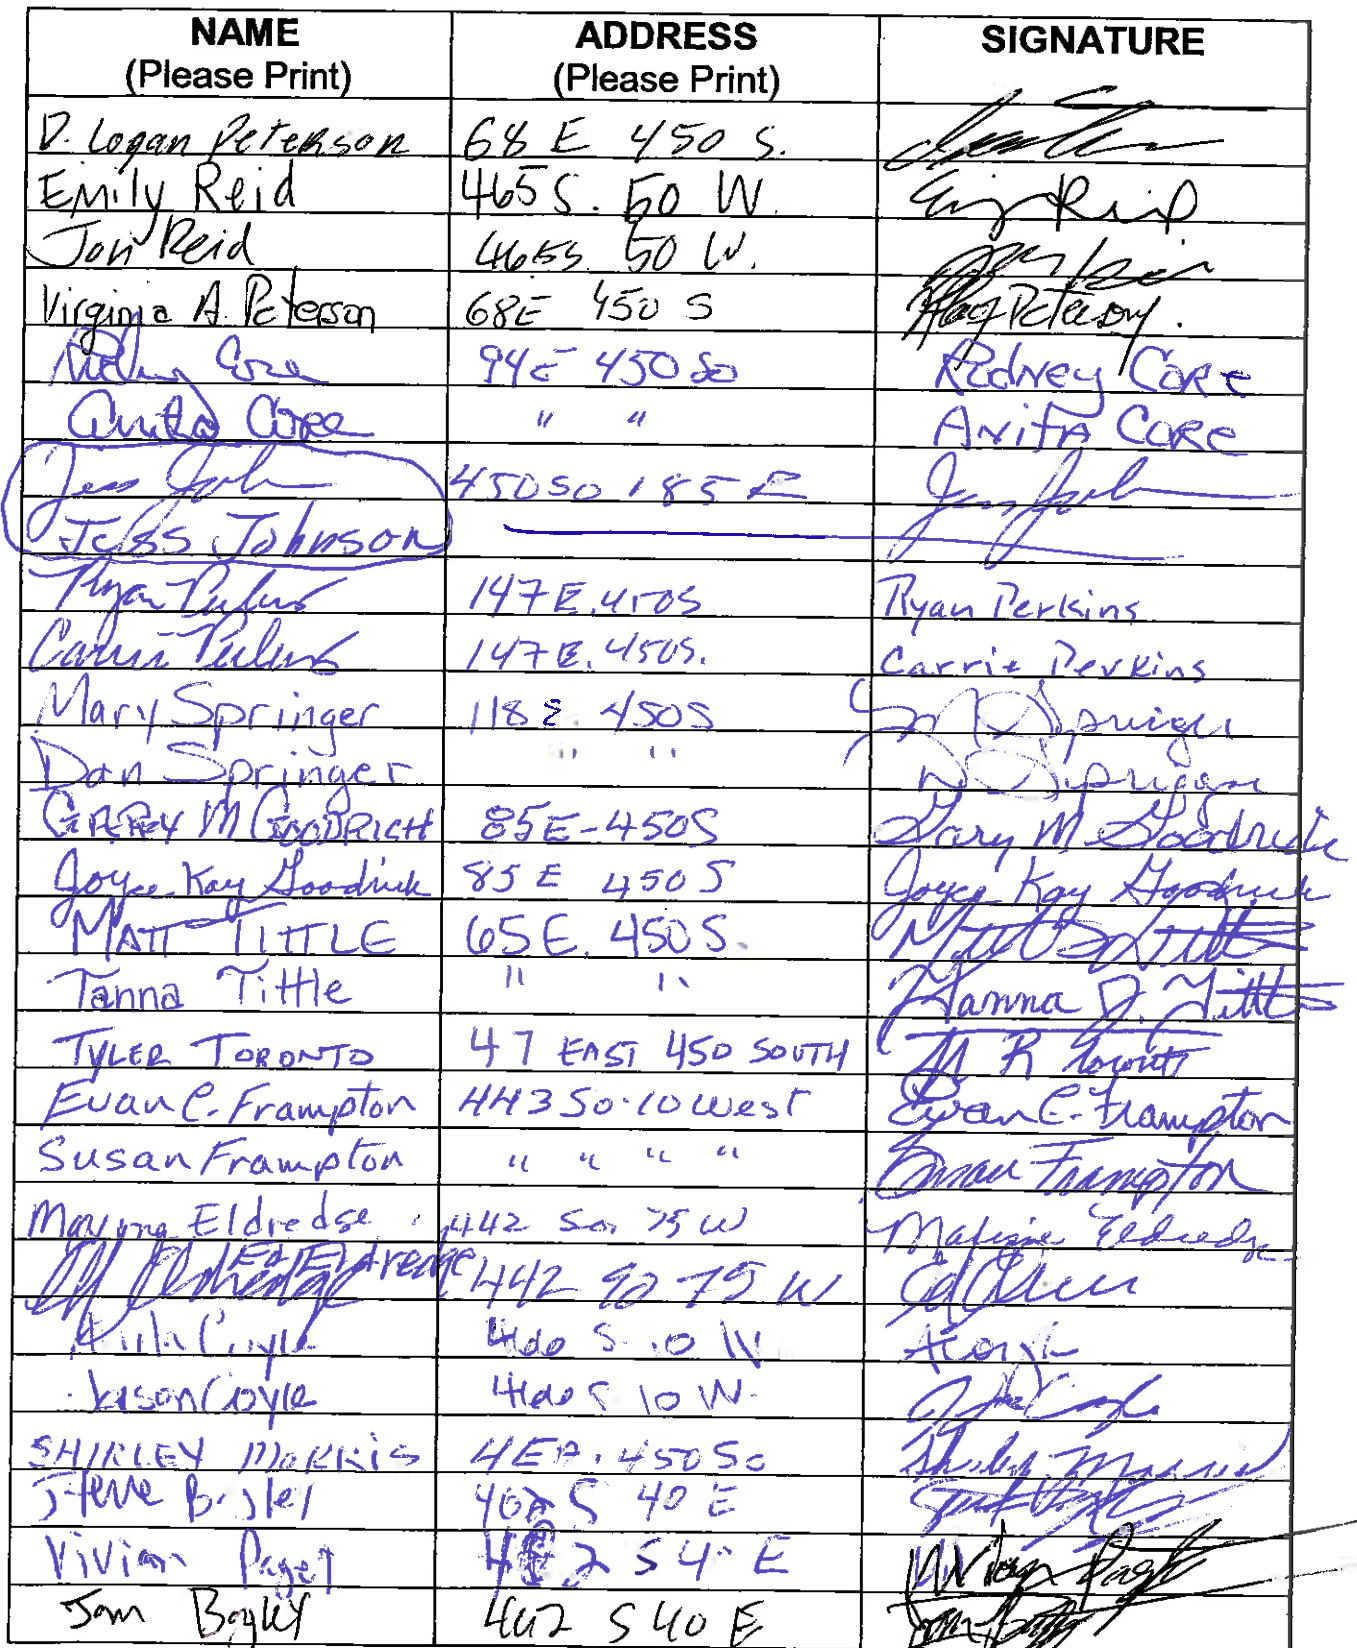 NAME ADDRESS SIGNATURE
(Please Print) (Please Print)
D. Logan Peterson 68 E 450 S.
Emily Reid 465 S. 50 W. Emily Reid
Jon Reid 465 S. 50 W.
Virginia A. Peterson 68E 450 S Peterson
Rodney Core 94E 450 So Rodney Core
Anita Core " " Anita Core
Jess 450 So 185 E Jess
Jess Johnson
Ryan Perkins 147 E. 450S Ryan Perkins
Carrie Perkins 147 E. 450S. Carrie Perkins
Mary Springer 118 E 450S Springer
Dan Springer " " Springer
GARRY M GOODRICH 85E-450S Gary M Goodrich
Joyce Kay Goodrich 85 E 450 S Joyce Kay Goodrich
MATT TITTLE 65 E. 450 S. Matt Tittle
Tanna Tittle " " Tanna J. Tittle
TYLER TORONTO 47 EAST 450 SOUTH
Evan C. Frampton 443 So. 10 West Evan C. Frampton
Susan Frampton " " " " Susan Frampton
Eldredge 442 So. 75 W Eldredge
Ed Eldredge 442 So 75 W Ed
Coyle 460 S 10 W
Jason Coyle 460 S 10 W.
SHIRLEY MORRIS 4 EA. 450 So Shirley Morris
Steve Bagley 402 S 40 E
Vivian Paget S 40 E Vivian Paget
Tom Bagley 402 S 40 E